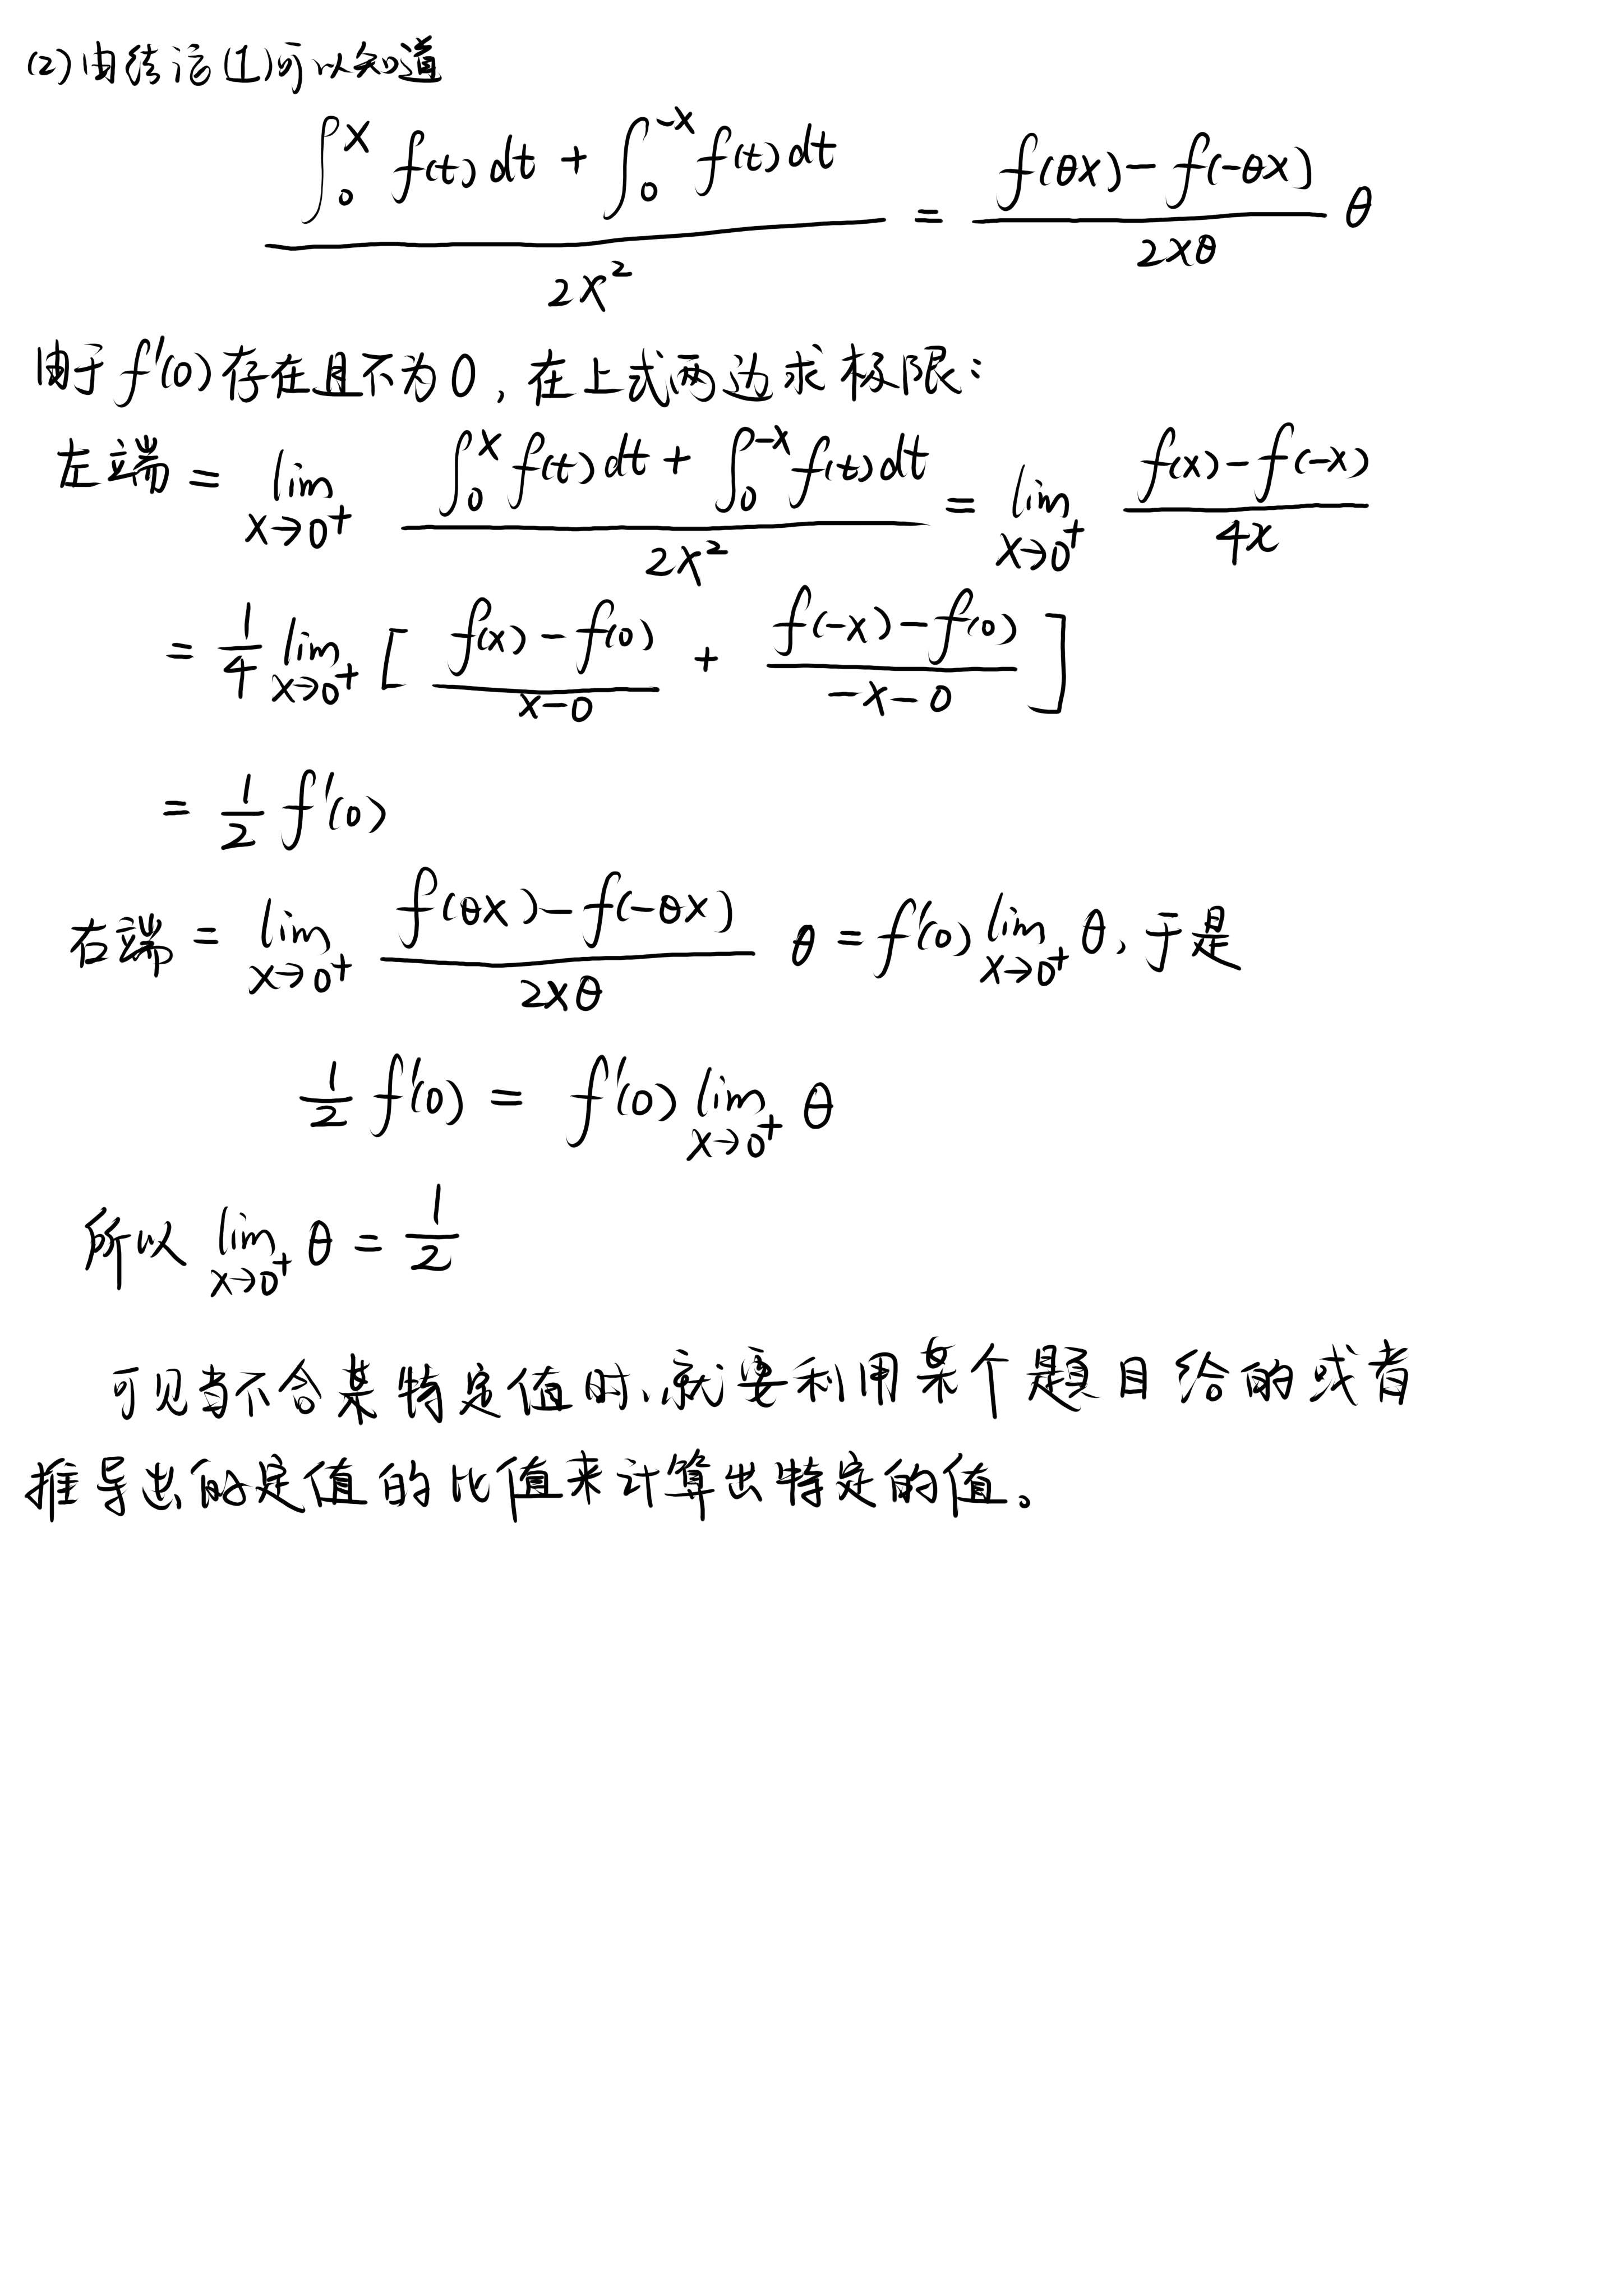 (2) 由结论(1)可以知道
\frac{\int_0^x f(t)dt + \int_0^{-x} f(t)dt}{2x^2} = \frac{f(θx) - f(-θx)}{2xθ} θ
由于f'(0)存在且不为0, 在上式两边求极限:
左端 = \lim_{x→0^+} \frac{\int_0^x f(t)dt + \int_0^{-x} f(t)dt}{2x^2} = \lim_{x→0^+} \frac{f(x) - f(-x)}{4x}
= \frac{1}{4} \lim_{x→0^+} [ \frac{f(x) - f(0)}{x-0} + \frac{f(-x) - f(0)}{-x-0} ]
= \frac{1}{2} f'(0)
右端 = \lim_{x→0^+} \frac{f(θx) - f(-θx)}{2xθ} θ = f'(0) \lim_{x→0^+} θ, 于是
\frac{1}{2} f'(0) = f'(0) \lim_{x→0^+} θ
所以 \lim_{x→0^+} θ = \frac{1}{2}
可见当不含某特定值时、就要利用某个题目给的或者
推导出的定值的比值来计算出特定的值。